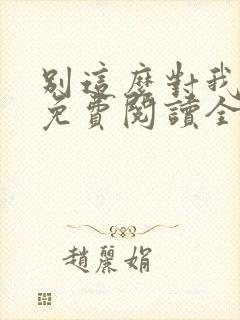 別這麼對我
免費閱讀全
趙麗娟